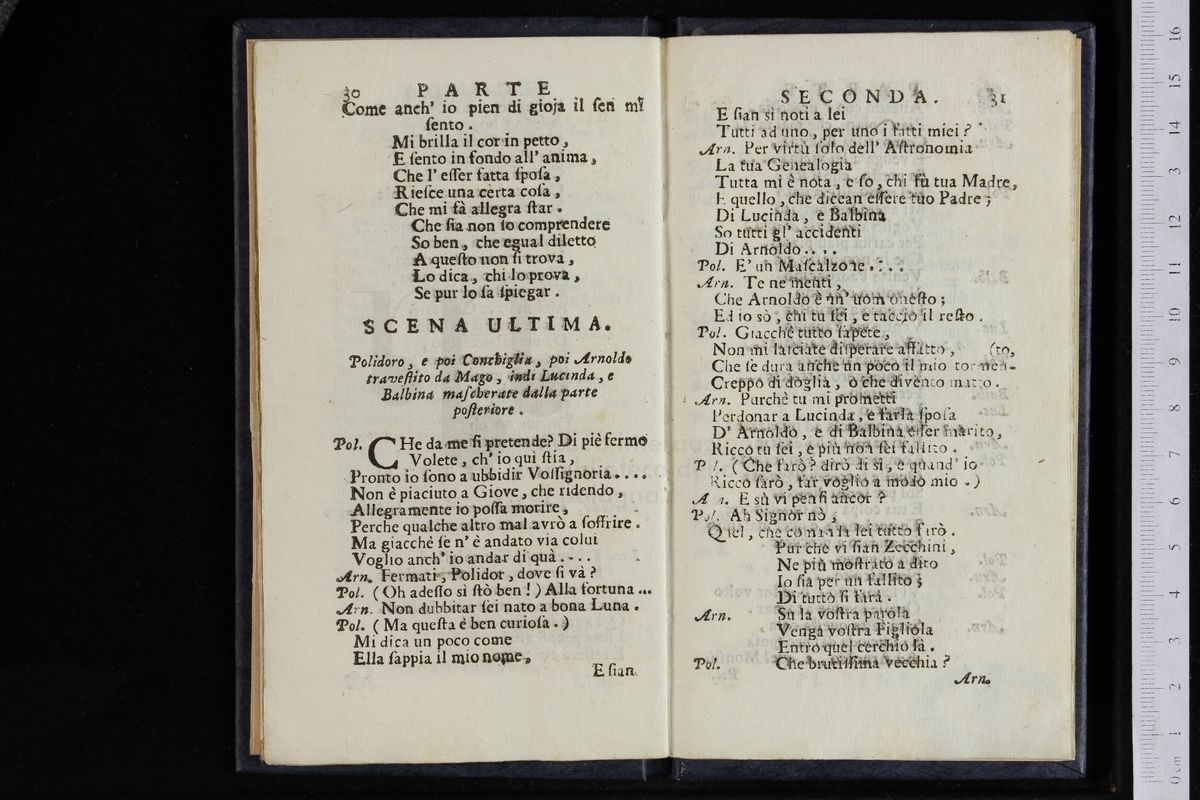 30 PARTE
Come anch' io pien di gioja il ſen mi
ſento.
Mi brilla il cor in petto,
E ſento in fondo all' anima,
Che l' eſſer fatta ſpoſa,
Rieſce una certa coſa,
Che mi fà allegra ſtar.
Che ſia non ſo comprendere
So ben, che egual diletto
A queſto non ſi trova,
Lo dica, chi lo prova,
Se pur lo ſa ſpiegar.
SCENA ULTIMA.
Polidoro, e poi Conchiglia, poi Arnoldo
traveſtito da Mago, indi Lucinda, e
Balbina maſcherate dalla parte
poſteriore.
Pol. CHe da me ſi pretende? Di piè fermo
Volete, ch' io qui ſtia,
Pronto io ſono a ubbidir Voſſignoria....
Non è piaciuto a Giove, che ridendo,
Allegramente io poſſa morire,
Perche qualche altro mal avrò a ſoffrire.
Ma giacchè ſe n' è andato via colui
Voglio anch' io andar di quà....
Arn. Fermati, Polidor, dove ſi và?
Pol. (Oh adeſſo sì ſtò ben!) Alla fortuna...
Arn. Non dubbitar ſei nato a bona Luna.
Pol. (Ma queſta è ben curioſa.)
Mi dica un poco come
Ella ſappia il mio nome,
E ſian
SECONDA. 31
E ſian sì noti a lei
Tutti ad uno, per uno i fatti miei?
Arn. Per virtù ſolo dell' Aſtronomia
La tua Genealogia
Tutta mi è nota, e ſo, chi fù tua Madre,
E quello, che dicean eſſere tuo Padre;
Di Lucinda, e Balbina
So tutti gl' accidenti
Di Arnoldo....
Pol. E' un Maſcalzone....
Arn. Te ne menti,
Che Arnoldo è un' uom oneſto;
Ed io sò, chi tu ſei, e taccio il reſto.
Pol. Giacchè tutto ſapete,
Non mi laſciate diſperare affatto, (to,
Che ſe dura anche un poco il mio tormen-
Creppo di doglia, o che divento matto.
Arn. Purchè tu mi prometti
Perdonar a Lucinda, e farla ſpoſa
D' Arnoldo, e di Balbina eſſer marito,
Ricco tu ſei, e più non ſei fallito.
Pol. (Che farò? dirò di sì, e quand' io
Ricco ſarò, far voglio a modo mio.)
Arn. E sù vi penſi ancor?
Pol. Ah Signor nò,
Quel, che comanda lei tutto farò.
Pur che vi ſian Zecchini,
Ne più moſtrato a dito
Io ſia per un fallito;
Di tutto ſi farà.
Arn. Su la voſtra parola
Venga voſtra Figliola
Entro quel cerchio là.
Pol. Che bruttiſſima vecchia?
Arn.